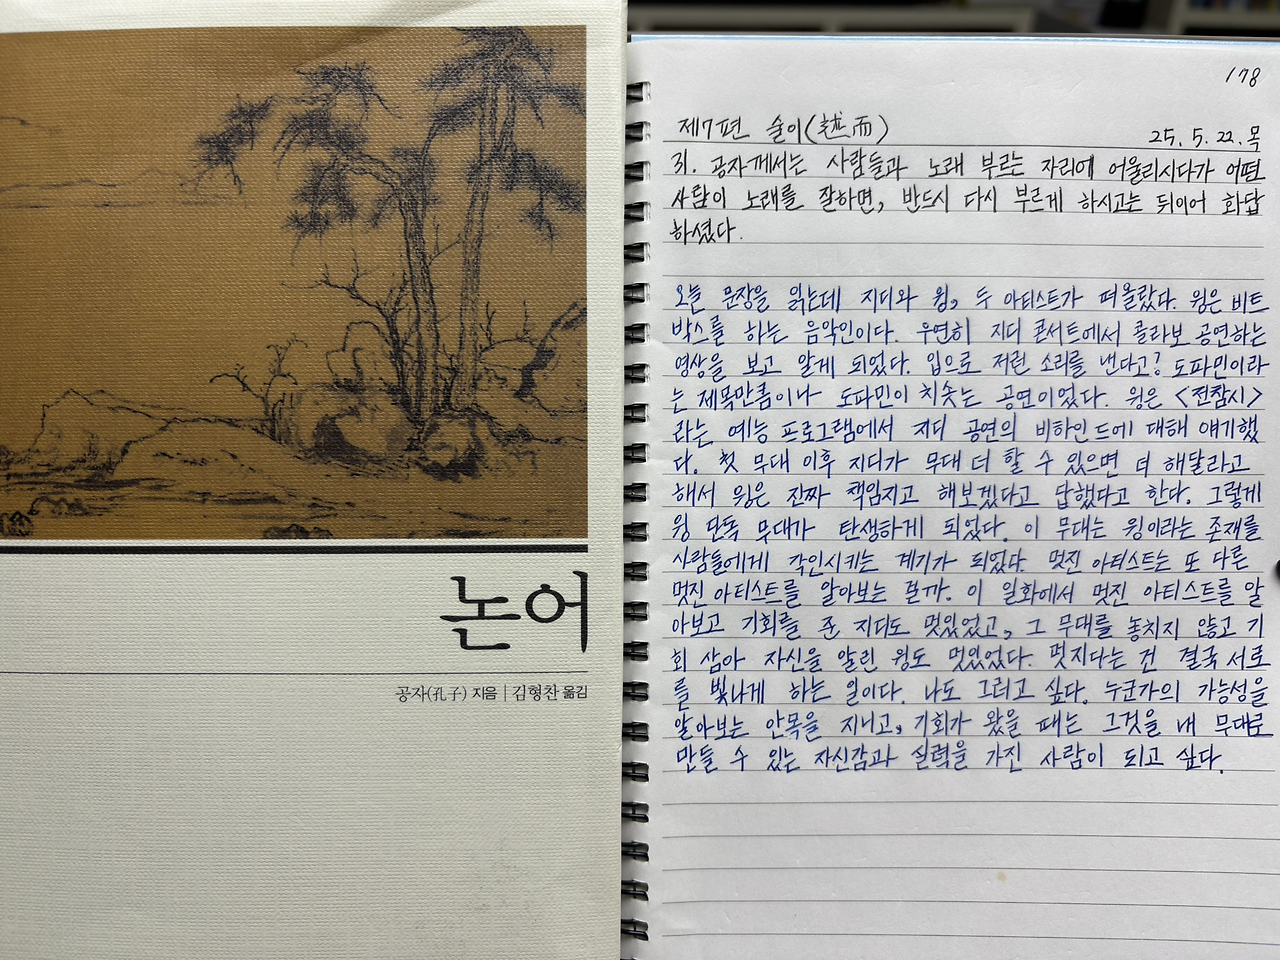 논어
공자(孔子) 지음 | 김형찬 옮김
178
제7편 술이(述而)
25. 5. 22. 목
31. 공자께서는 사람들과 노래 부르는 자리에 어울리시다가 어떤
사람이 노래를 잘하면, 반드시 다시 부르게 하시고는 뒤이어 화답
하셨다.
오늘 문장을 읽는데 지디와 윙, 두 아티스트가 떠올랐다. 윙은 비트
박스를 하는 음악인이다. 우연히 지디 콘서트에서 콜라보 공연하는
영상을 보고 알게 되었다. 입으로 저런 소리를 낸다고? 도파민이라
는 제목만큼이나 도파민이 치솟는 공연이었다. 윙은 <전참시>
라는 예능 프로그램에서 지디 공연의 비하인드에 대해 얘기했
다. 첫 무대 이후 지디가 무대 더 할 수 있으면 더 해달라고
해서 윙은 진짜 책임지고 해보겠다고 답했다고 한다. 그렇게
윙 단독 무대가 탄생하게 되었다. 이 무대는 윙이라는 존재를
사람들에게 각인시키는 계기가 되었다. 멋진 아티스트는 또 다른
멋진 아티스트를 알아보는 걸까. 이 일화에서 멋진 아티스트를 알
아보고 기회를 준 지디도 멋있었고, 그 무대를 놓치지 않고 기
회 삼아 자신을 알린 윙도 멋있었다. 멋지다는 건 결국 서로
를 빛나게 하는 일이다. 나도 그러고 싶다. 누군가의 가능성을
알아보는 안목을 지니고, 기회가 왔을 때는 그것을 내 무대로
만들 수 있는 자신감과 실력을 가진 사람이 되고 싶다.